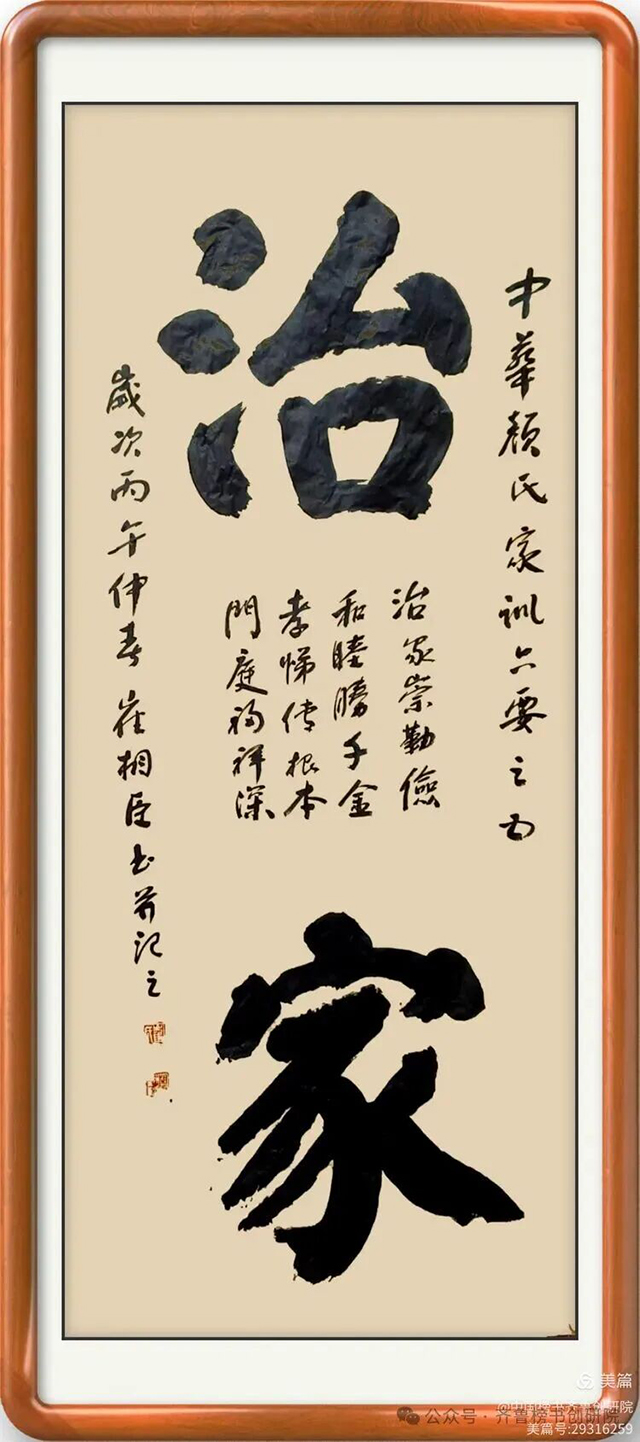 中華顏氏家訓六要之
治家
治家崇勤儉
和睦勝千金
孝悌传根本
門庭福祥深
歲次丙午仲春崔相臣书并記之
美篇
公众号 · 齐鲁榜书创研院
美篇号:29316259